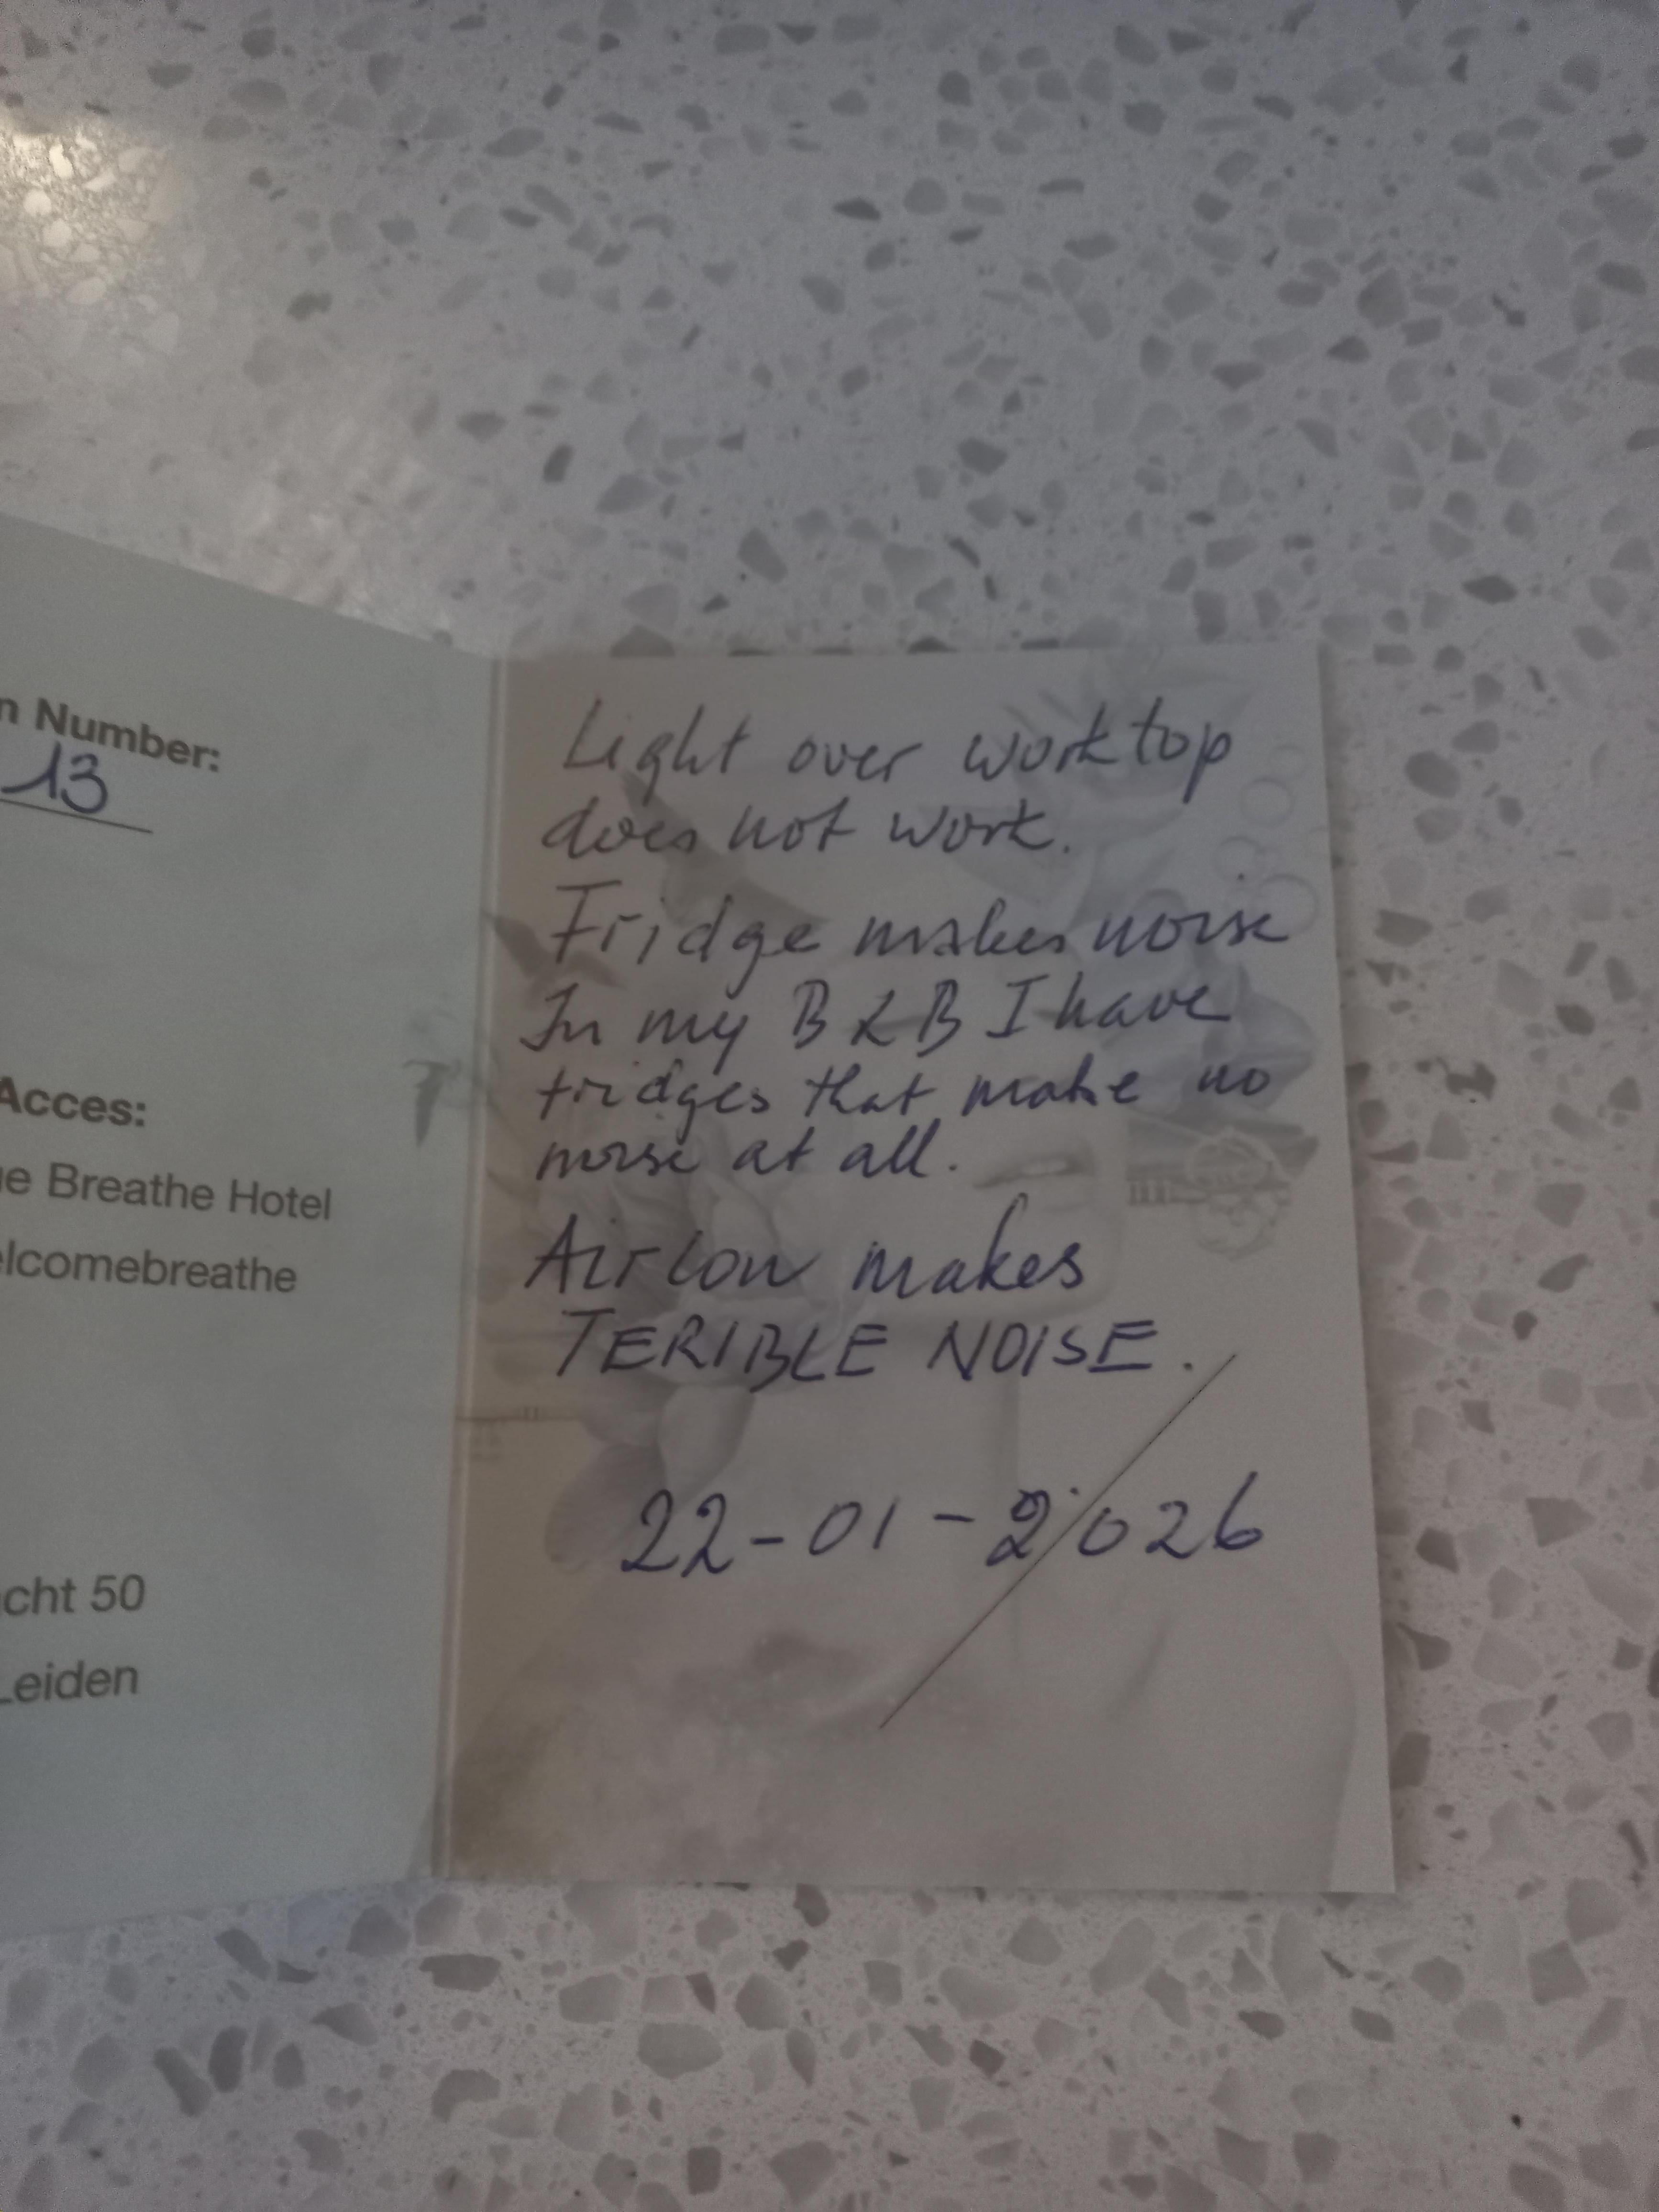 n Number:
13
Acces:
e Breathe Hotel
elcomebreathe
cht 50
Leiden
Light over worktop
does not work.
Fridge makes noise
In my B & B I have
fridges that make no
noise at all.
Aircon makes
TERIBLE NOISE.
22-01-2026